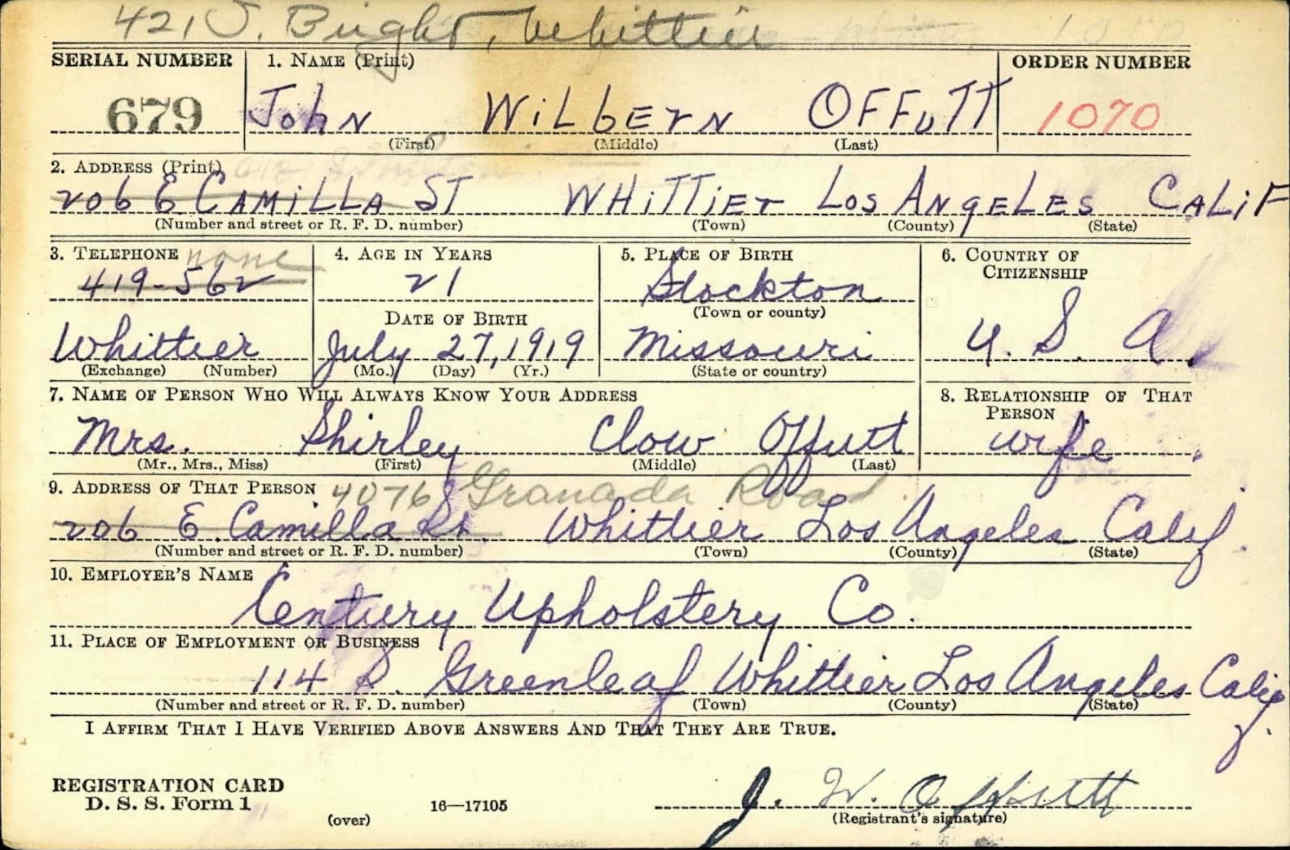 421 S. Bright, Whittier
SERIAL NUMBER 1. NAME (Print) ORDER NUMBER
679 JOHN WILBERN OFFUTT 1070
(First) (Middle) (Last)
2. ADDRESS (Print)
206 E CAMILLA ST WHITTIER LOS ANGELES CALIF
(Number and street or R. F. D. number) (Town) (County) (State)
3. TELEPHONE none 4. AGE IN YEARS 5. PLACE OF BIRTH 6. COUNTRY OF CITIZENSHIP
419-562 21 Stockton
DATE OF BIRTH (Town or county)
Whittier July 27, 1919 Missouri U. S. A.
(Exchange) (Number) (Mo.) (Day) (Yr.) (State or country)
7. NAME OF PERSON WHO WILL ALWAYS KNOW YOUR ADDRESS 8. RELATIONSHIP OF THAT PERSON
Mrs. Shirley Clow Offutt wife
(Mr., Mrs., Miss) (First) (Middle) (Last)
9. ADDRESS OF THAT PERSON 4076 Granada Road
206 E. Camilla St. Whittier Los Angeles Calif.
(Number and street or R. F. D. number) (Town) (County) (State)
10. EMPLOYER'S NAME
Century Upholstery Co.
11. PLACE OF EMPLOYMENT OR BUSINESS
114 S. Greenleaf Whittier Los Angeles Calif.
(Number and street or R. F. D. number) (Town) (County) (State)
I AFFIRM THAT I HAVE VERIFIED ABOVE ANSWERS AND THAT THEY ARE TRUE.
REGISTRATION CARD
D. S. S. Form 1 16—17105 J. W. Offutt
(over) (Registrant's signature)